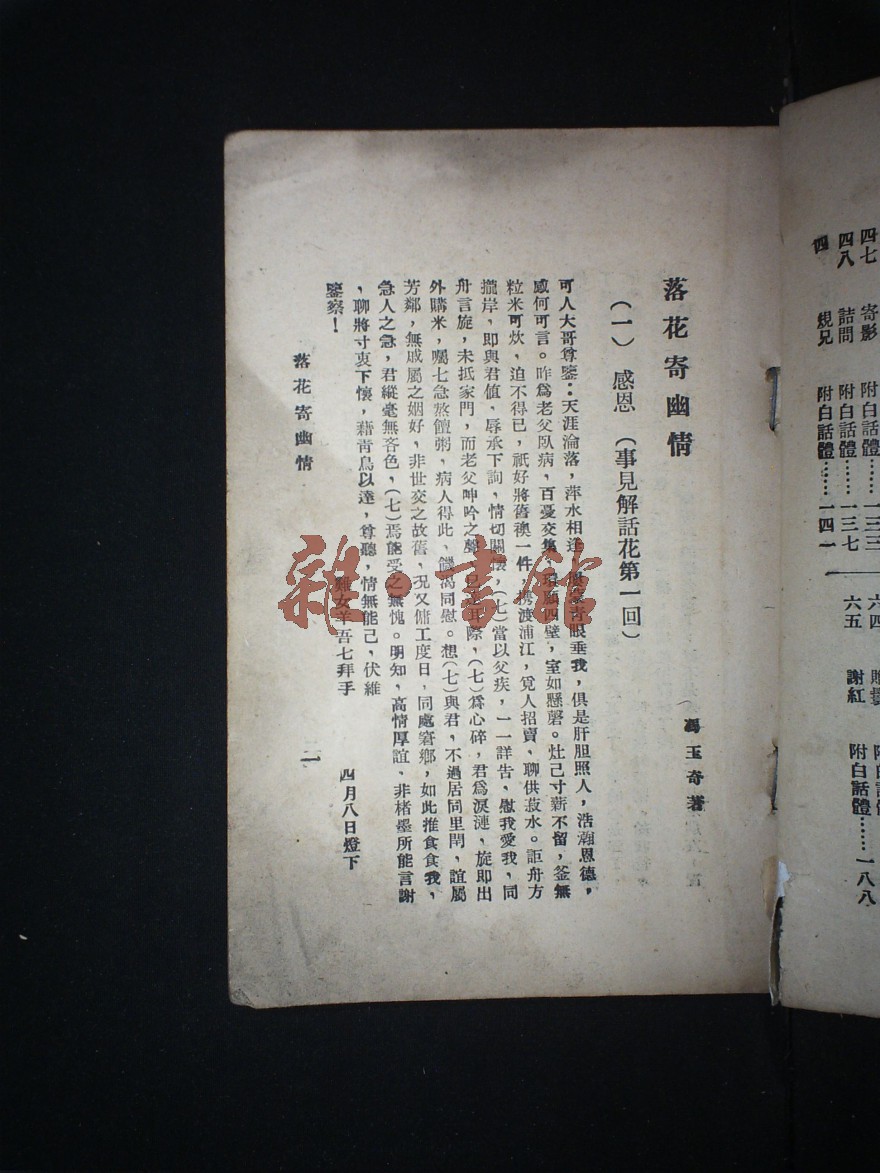 四七 寄影 附白話體……一三三
四八 詰問 附白話體……一三七
四 規兄 附白話體……一四一
六四 附白話體
六五 謝紅 附白話體……一八八
落花寄幽情
馮玉奇著
（一） 感恩 （事見解話花第一回）
可人大哥尊鑒：天涯淪落，萍水相逢，青眼垂我，俱是肝胆照人，浩瀚恩德，
感何可言。昨爲老父臥病，百憂交集，環顧四壁，室如懸磬。灶己寸薪不留，釜無
粒米可炊，迫不得已，祇好將舊襖一件，携渡浦江，覓人招賣，聊供菽水。詎舟方
攏岸，即與君值，辱承下詢，情切關懷，（七）當以父疾，一一詳告，慰我愛我，同
舟言旋，未抵家門，而老父呻吟之聲，已達耳際，（七）爲心碎，君爲淚漣，旋即出
外購米，囑七急熬饘粥，病人得此，饑渴同慰。想（七）與君，不過居同里閈，誼屬
芳鄰，無戚屬之姻好，非世交之故舊，况又傭工度日，同處窘鄉，如此推食食我，
急人之急，君縱毫無吝色，（七）焉能受之無愧。明知，高情厚誼，非楮墨所能言謝
，聊將寸衷下懷，藉靑鳥以達，尊聽，情無能己，伏維
鑒察！
難女羊吾七拜手
四月八日燈下
落花寄幽情
一
雜·書館